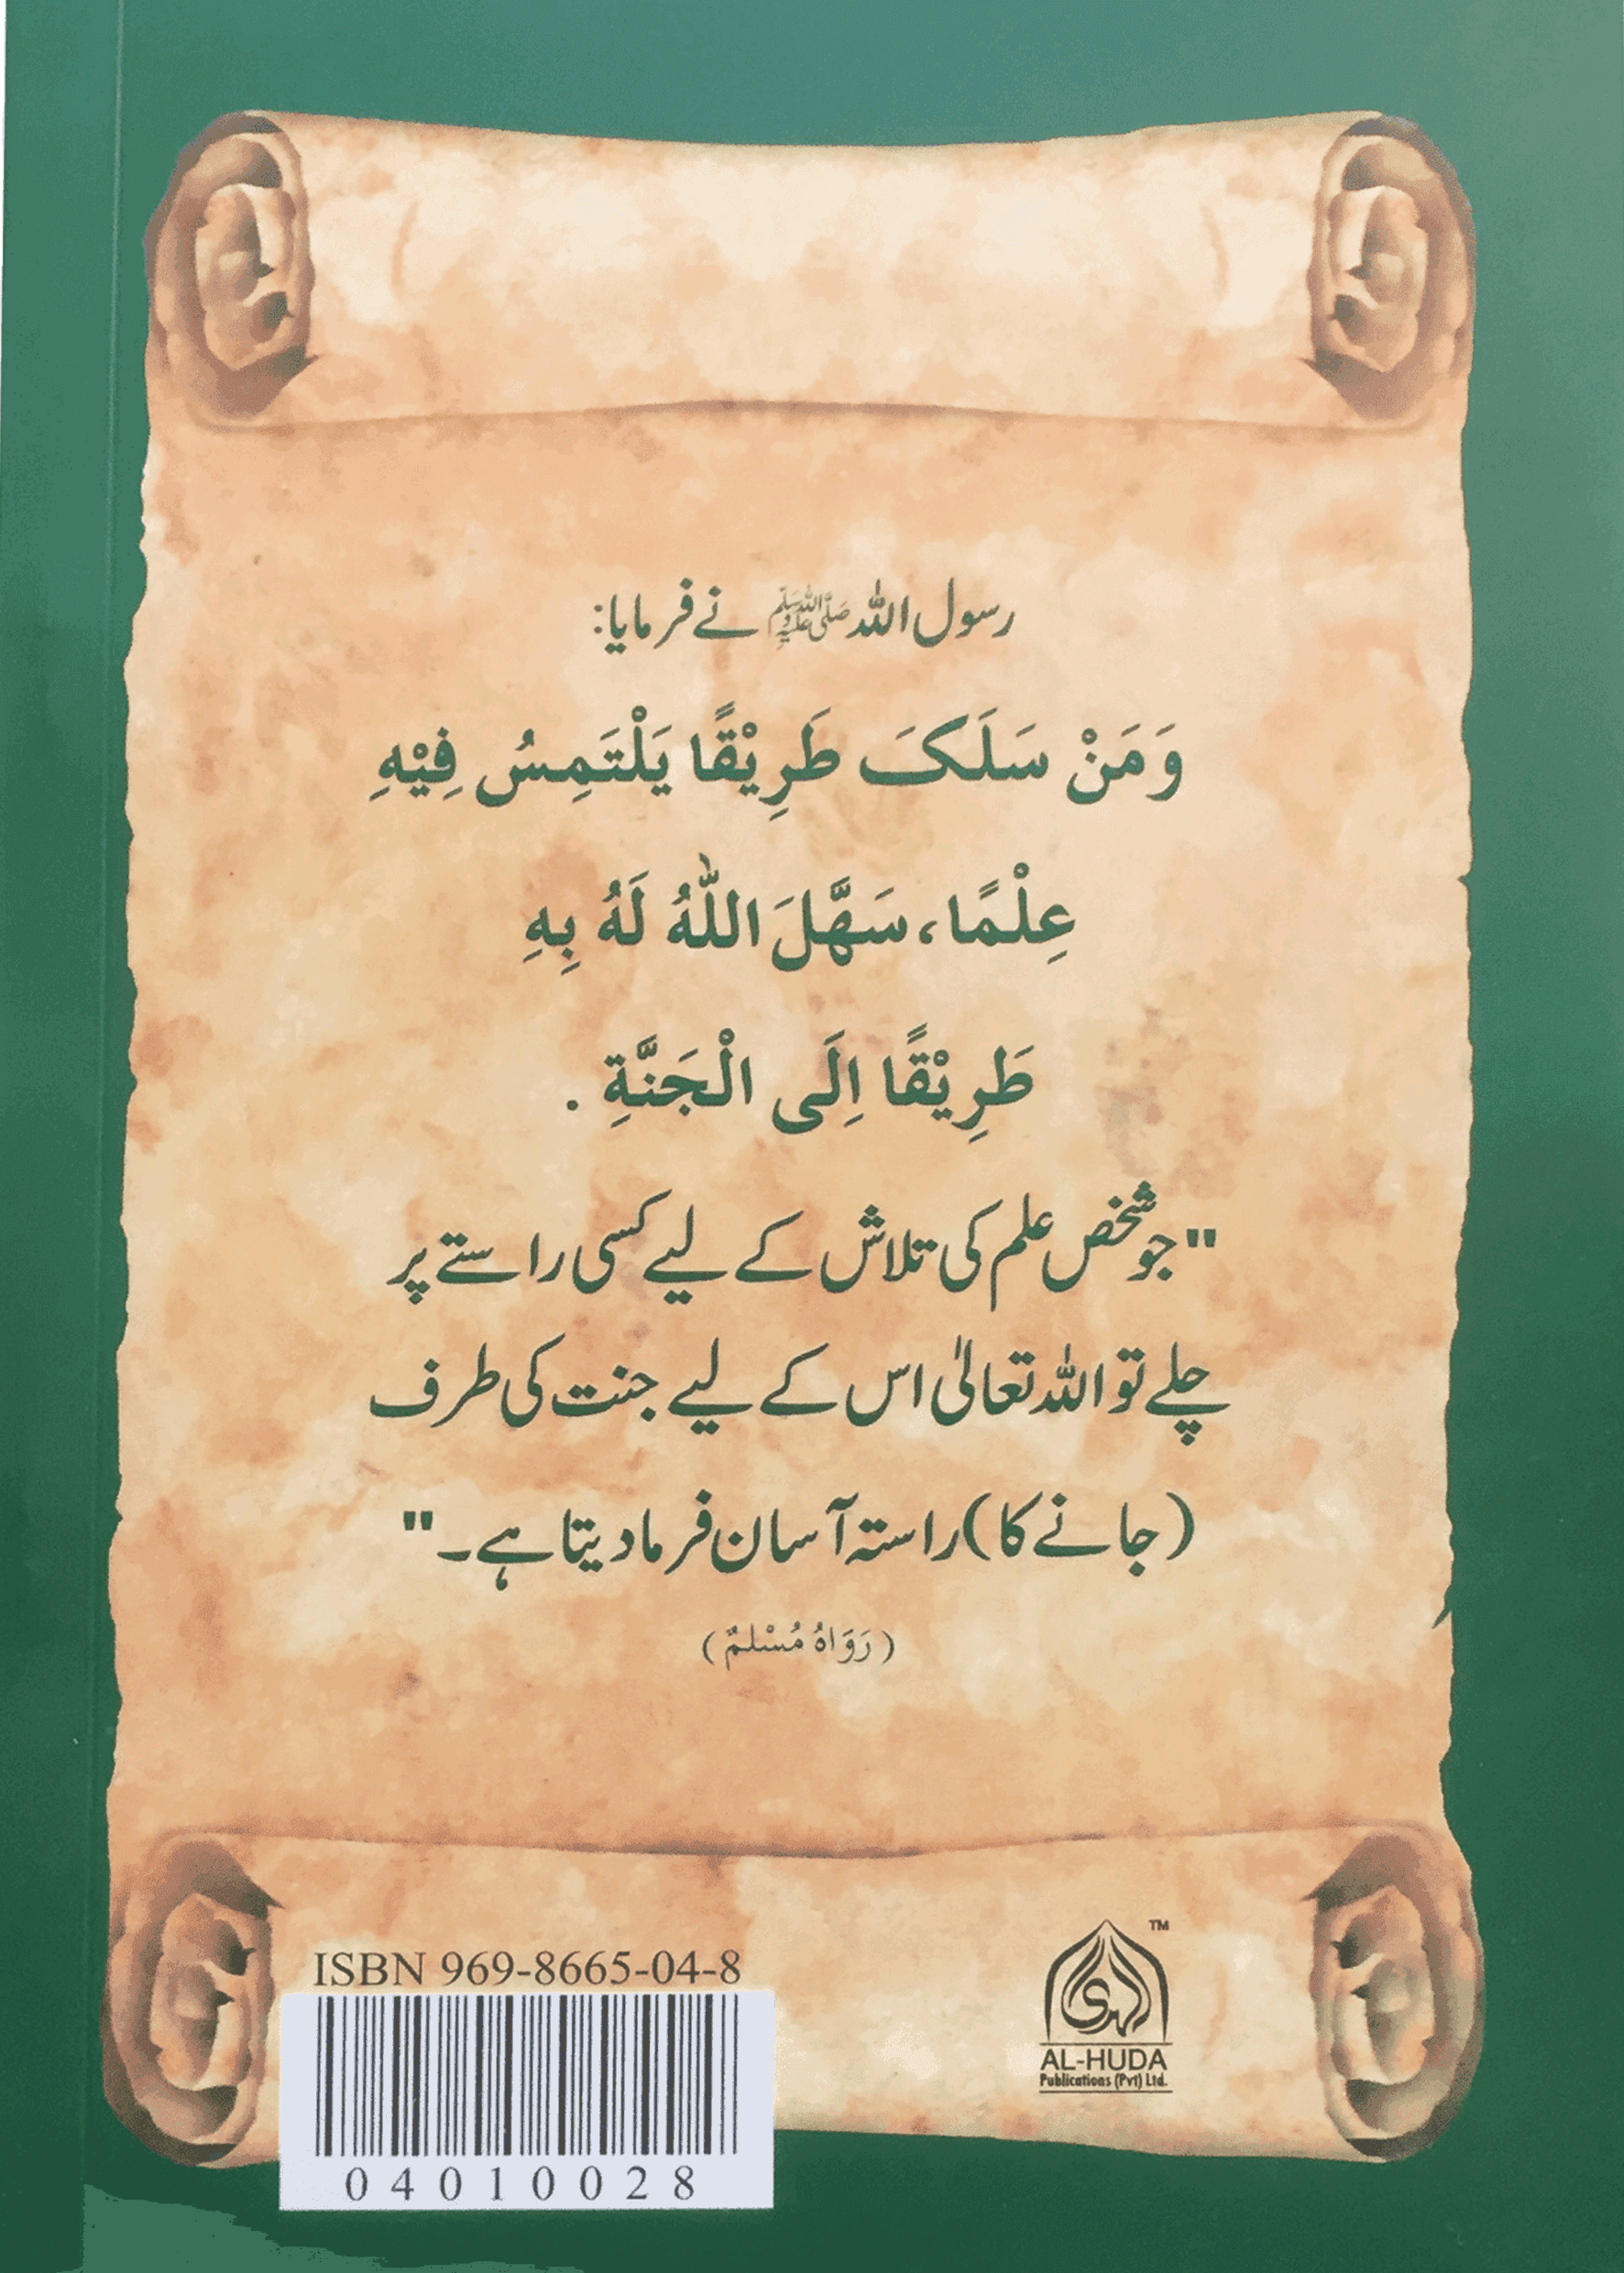 رسول اللہ ﷺ نے فرمایا:
وَمَنْ سَلَکَ طَرِیْقًا یَلْتَمِسُ فِیْهِ
عِلْمًا، سَهَّلَ اللّٰهُ لَهُ بِهِ
طَرِیْقًا اِلَی الْجَنَّةِ .
"جو شخص علم کی تلاش کے لیے کسی راستے پر
چلے تو اللہ تعالیٰ اس کے لیے جنت کی طرف
(جانے کا) راستہ آسان فرما دیتا ہے۔"
(رَوَاهُ مُسْلِمٌ)
ISBN 969-8665-04-8
04010028
الهدى
TM
AL-HUDA
Publications (Pvt) Ltd.